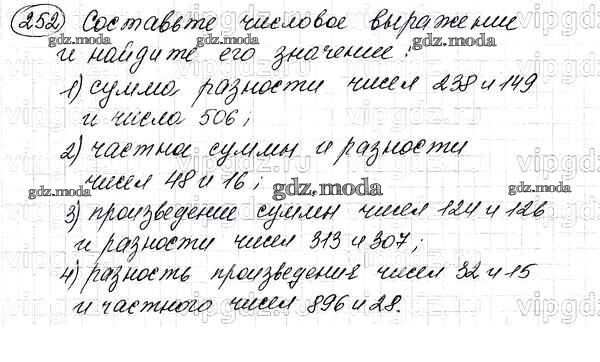 252 Составьте числовое выражение
и найдите его значение:
1) сумма разности чисел 238 и 149
и числа 506;
2) частна суммы и разности
чисел 48 и 16;
3) произведение суммы чисел 124 и 126
и разности чисел 313 и 307;
4) разность произведения чисел 32 и 15
и частного чисел 896 и 28.
gdz.moda
gdz.moda
gdz.moda
gdz.moda
gdz.moda
gdz.moda
gdz.moda
gdz.moda
gdz.moda
gdz.moda